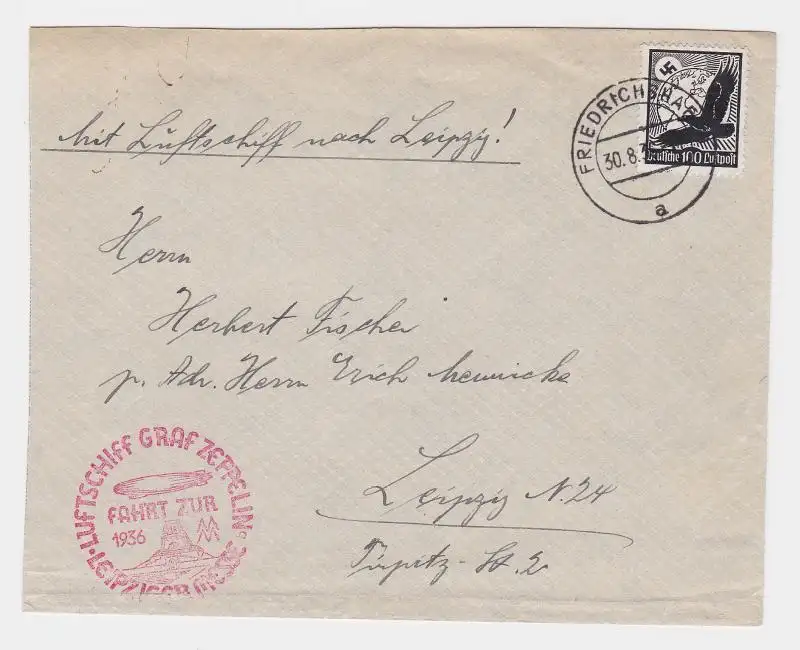 Mit Luftschiff nach Leipzig!
FRIEDRICHSHAF
30.8.3
a
Deutsche 100 Luftpost
Herrn
Herbert Fischer
p. Adr. Herrn Erich
Leipzig N. 24
Tirpitz-St. 2
LUFTSCHIFF GRAF ZEPPELIN
FAHRT ZUR
1936
MM
LEIPZIGER MESSE